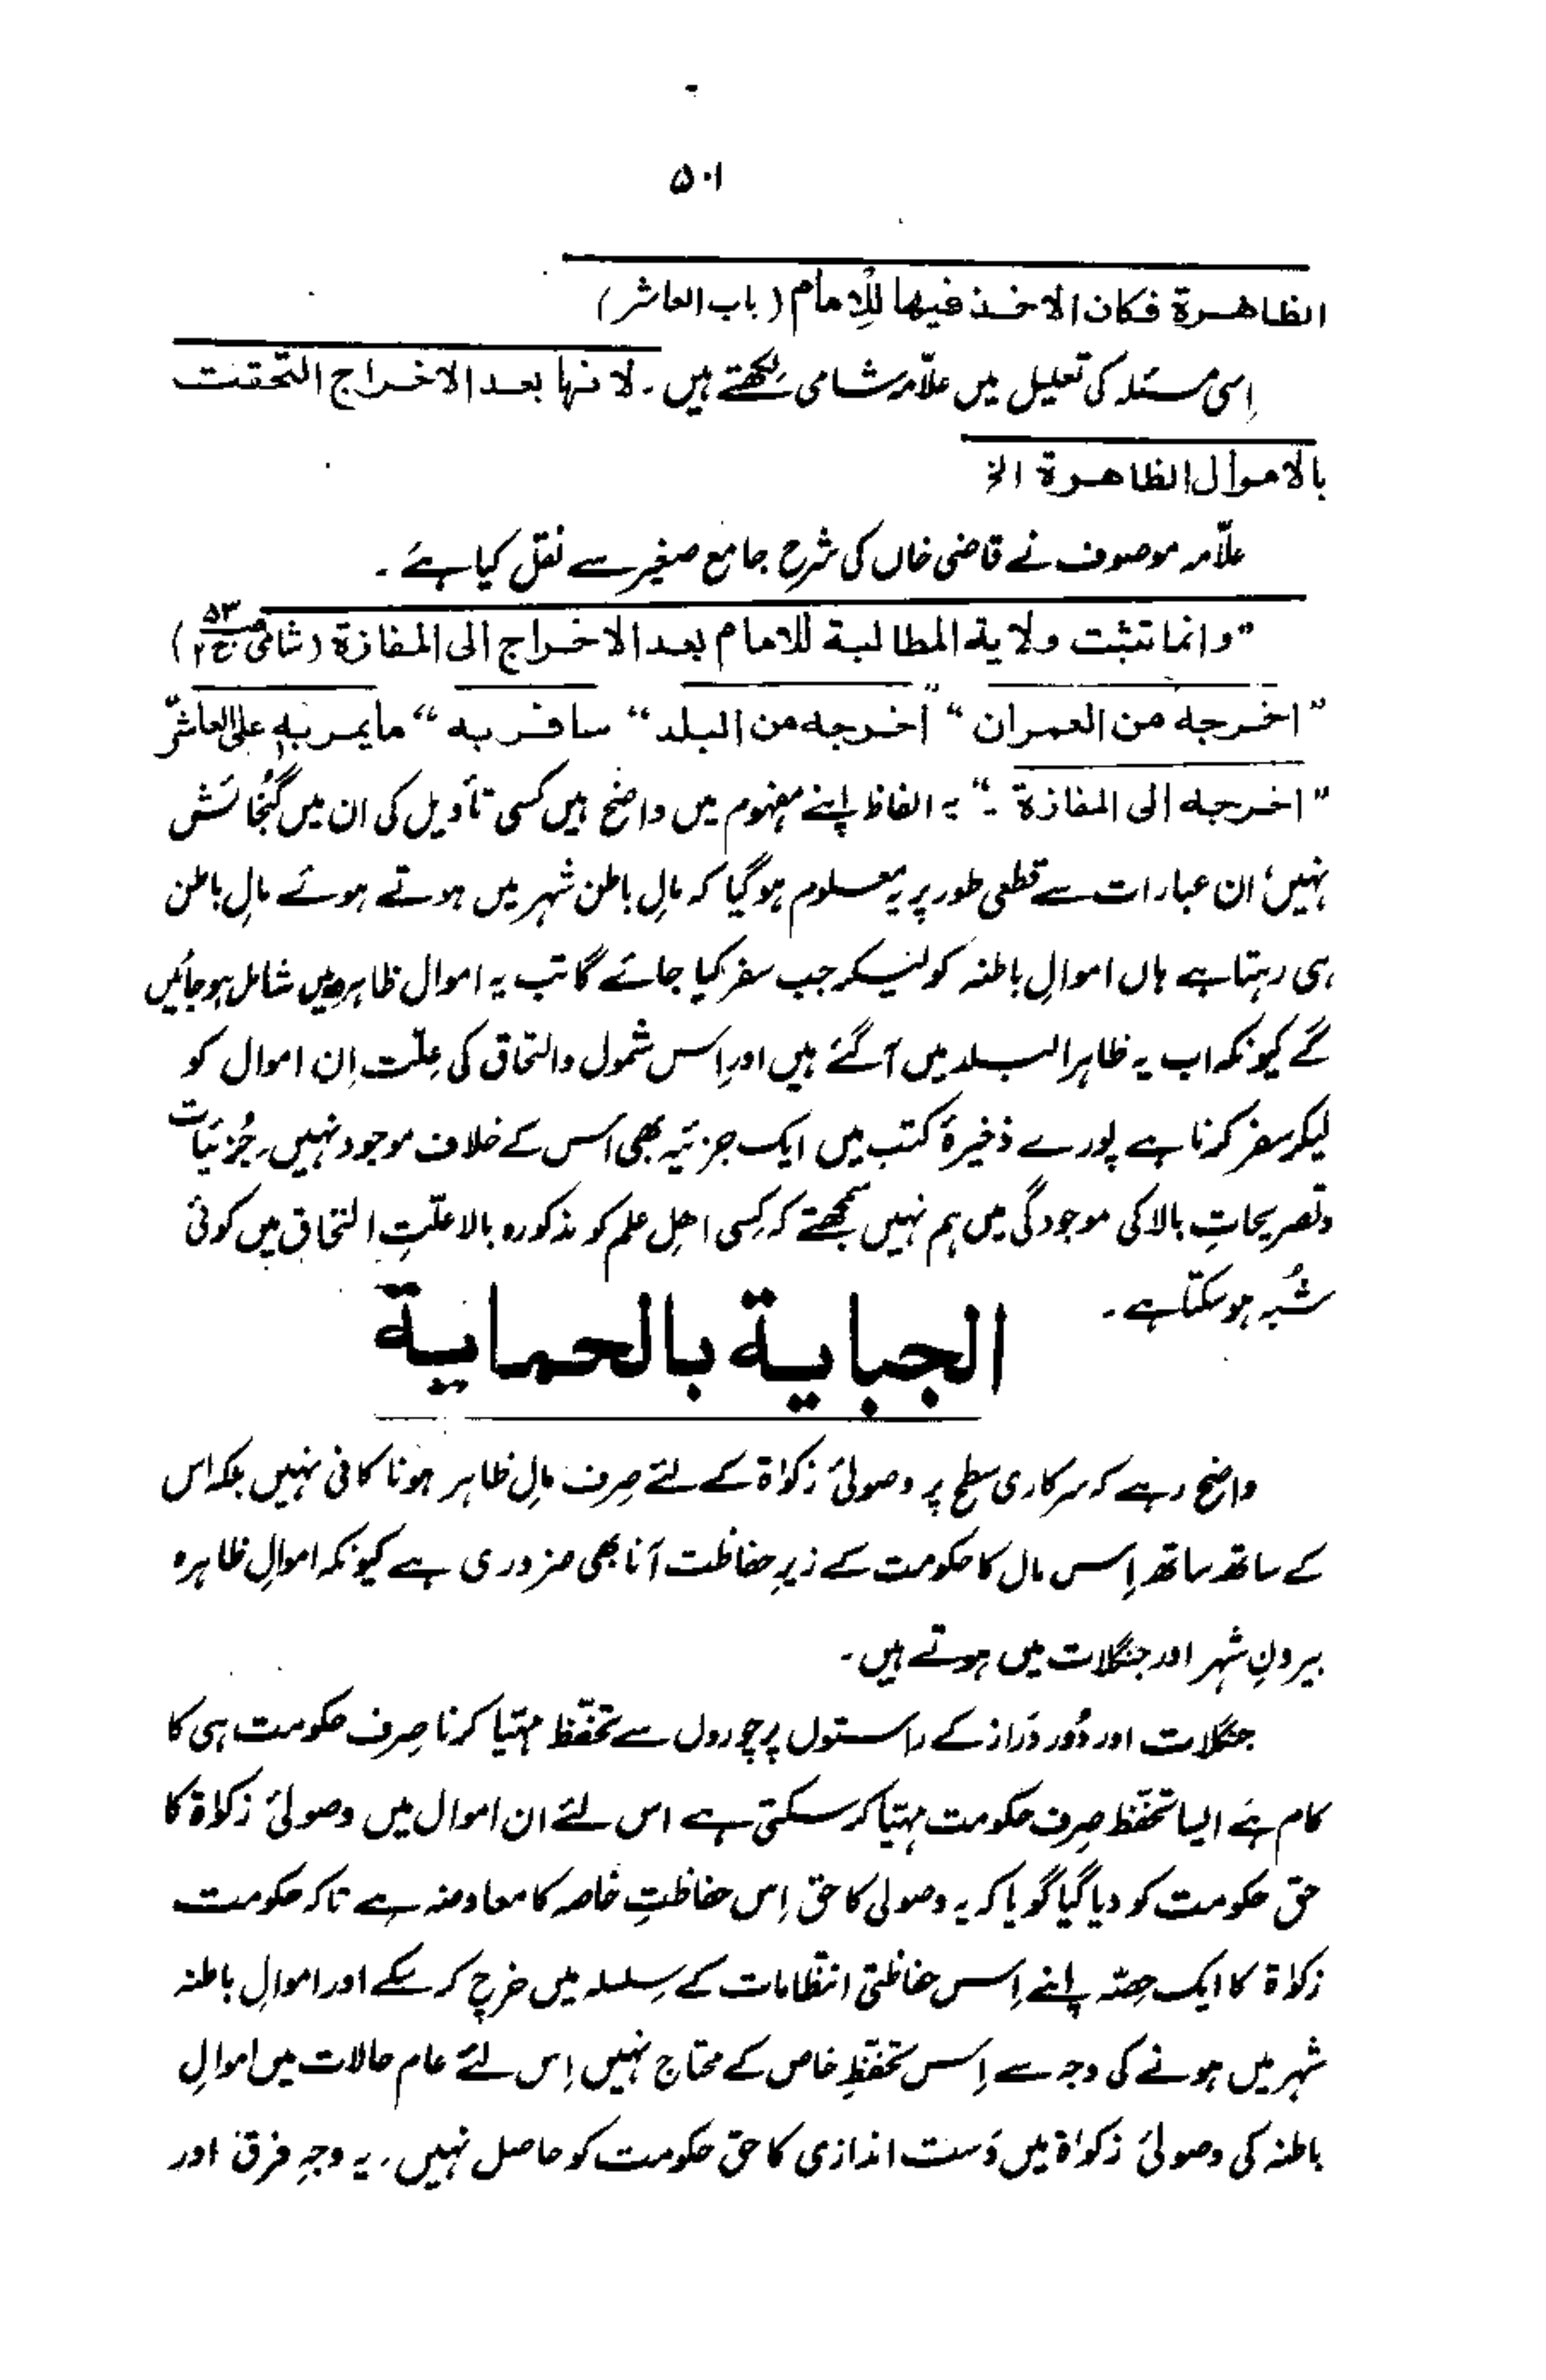 ۵۰۱
الظاهرة فكان الاخذ فيها للامام (باب العاشر)
اِسی مسئلہ کی تعلیل میں علاّمہ شامی لکھتے ہیں۔ لانها بعد الاخراج التحقت
بالاموال الظاهرة الخ
علاّمہ موصوف نے قاضی خاں کی شرح جامع صغیر سے نقل کیا ہے۔
"وانما تثبت ولاية المطالبة للامام بعد الاخراج الى المفازة (شامی ص۵۳ ج۲)
"اخرجه من العمران" "اخرجه من البلد" سافر به" مايمر به على العاشر"
"اخرجه الى المفازة۔" یہ الفاظ اپنے مفہوم میں واضح ہیں کسی تأویل کی ان میں گنجائش
نہیں؛ ان عبارات سے قطعی طور پر یہ معلوم ہو گیا کہ مالِ باطن شہر میں ہوتے ہوئے مالِ باطن
ہی رہتا ہے ہاں اموالِ باطنہ کو لیکر جب سفر کیا جائے گا تب یہ اموال ظاہرہ میں شامل ہو جائیں
گے کیونکہ اب یہ ظاہر البلد میں آ گئے ہیں اور اِس شمول والتحاق کی عِلّت اِن اموال کو
لیکر سفر کرنا ہے پورے ذخیرۂ کتب میں ایک جزئیہ بھی اس کے خلاف موجود نہیں۔ جُزئیات
وتصریحاتِ بالا کی موجودگی میں ہم نہیں سمجھتے کہ کِسی اھلِ علم کو مذکورہ بالا علّتِ التحاق میں کوئی
شُبہ ہو سکتا ہے۔
الجباية بالحماية
واضح رہے کہ سرکاری سطح پر وصولیٔ زکوٰۃ کے لئے صِرف مالِ ظاہر ہونا کافی نہیں بلکہ اس
کے ساتھ ساتھ اِس مال کا حکومت کے زیرِ حفاظت آنا بھی ضروری ہے کیونکہ اموالِ ظاہرہ
بیرونِ شہر اور جنگلات میں ہوتے ہیں۔
جنگلات اور دُور دَراز کے راستوں پر چوروں سے تحفّظ مہیّا کرنا صِرف حکومت ہی کا
کام ہے ایسا تحفّظ صِرف حکومت مہیّا کر سکتی ہے اس لئے ان اموال میں وصولیٔ زکوٰۃ کا
حق حکومت کو دیا گیا گویا کہ یہ وصولی کا حق اِس حفاظتِ خاصہ کا معاوضہ ہے تاکہ حکومت
زکوٰۃ کا ایک حِصّہ اپنے اِس حفاظتی انتظامات کے سِلسلہ میں خرچ کر سکے اور اموالِ باطنہ
شہر میں ہونے کی وجہ سے اِس تحفّظِ خاص کے محتاج نہیں اِس لئے عام حالات میں اموالِ
باطنہ کی وصولیٔ زکوٰۃ میں دَست اندازی کا حق حکومت کو حاصل نہیں۔ یہ وجہِ فرق اور